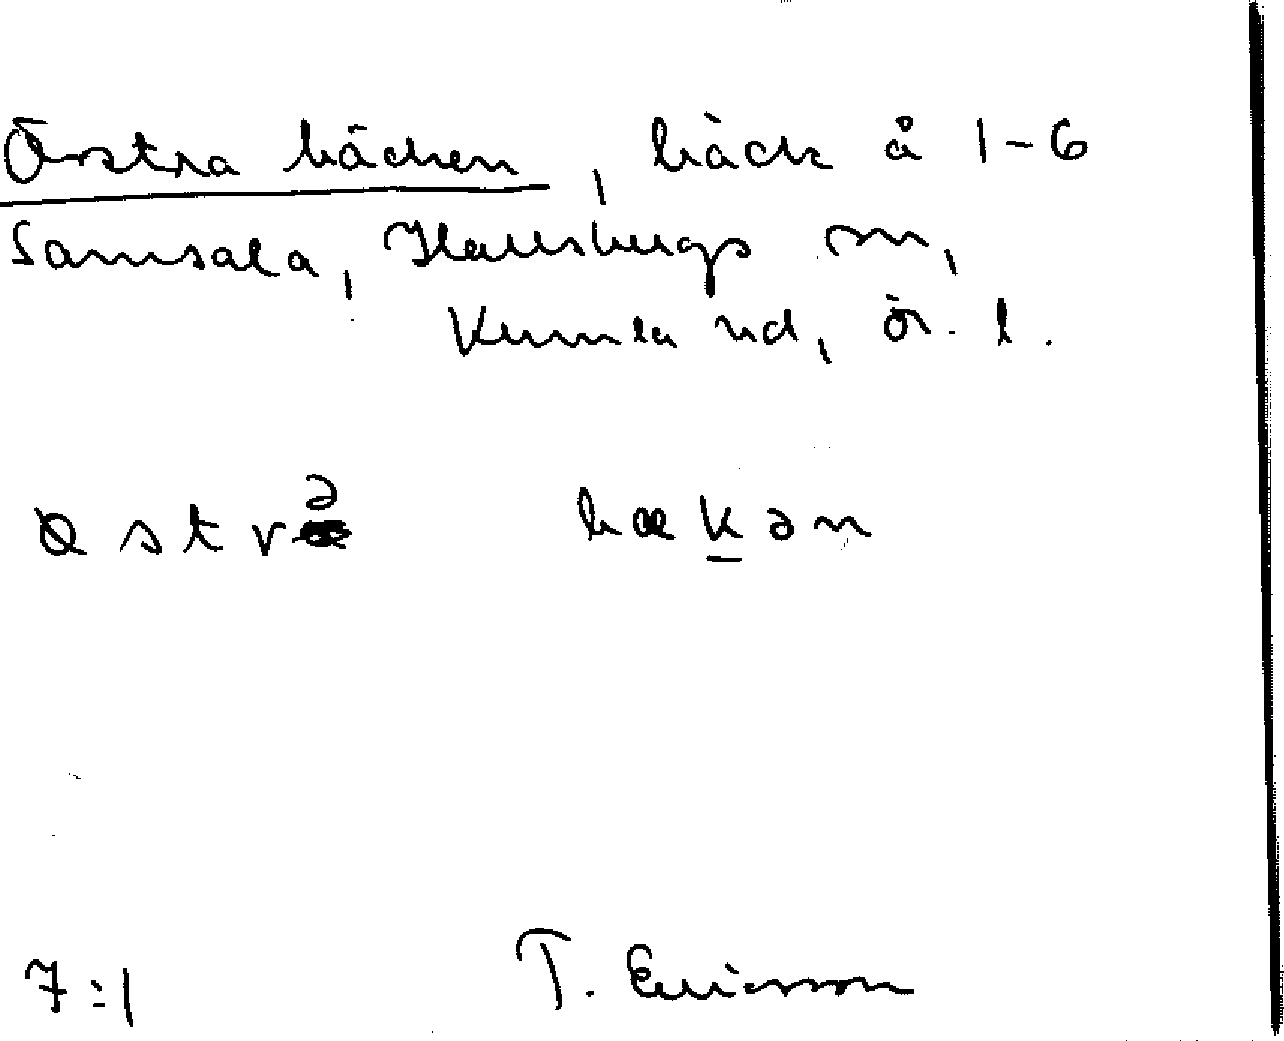 Östra bäcken, bäck å 1-6
Samsala, Hallsbergs sn,
Kumla hd, Ör. l.
østrə bækən
7:1 T. Ericsson